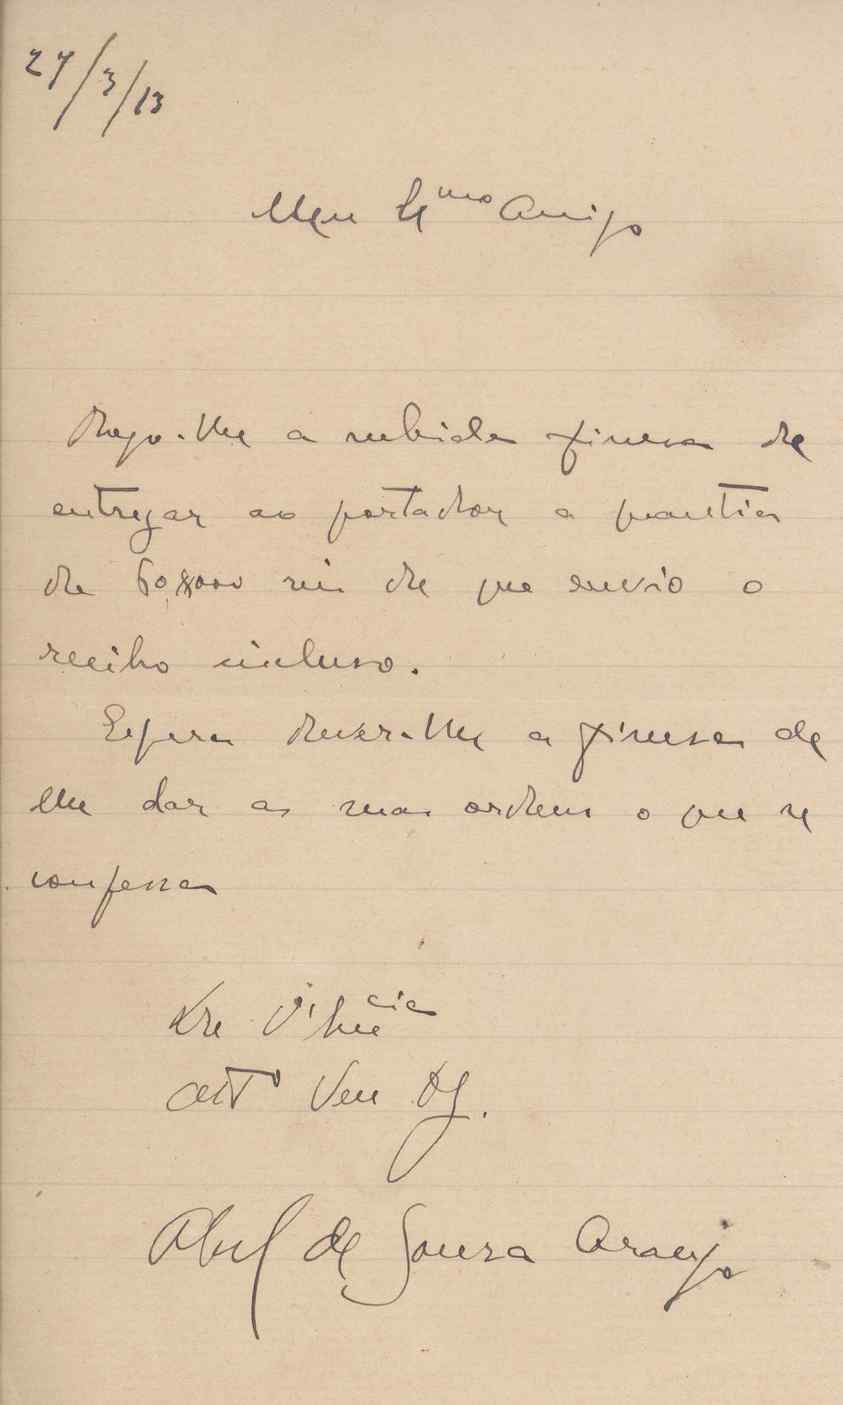 27/3/13
Meu Exmo Amigo
Rogo-lhe a subida finesa de
entregar ao portador a quantia
de 60$000 reis de que envio o
recibo incluso.
Espera dever-lhe a finesa de
lhe dar as suas ordens o que se
confessa
De V. Excia
Atto Ven
Abel de Sousa Araujo